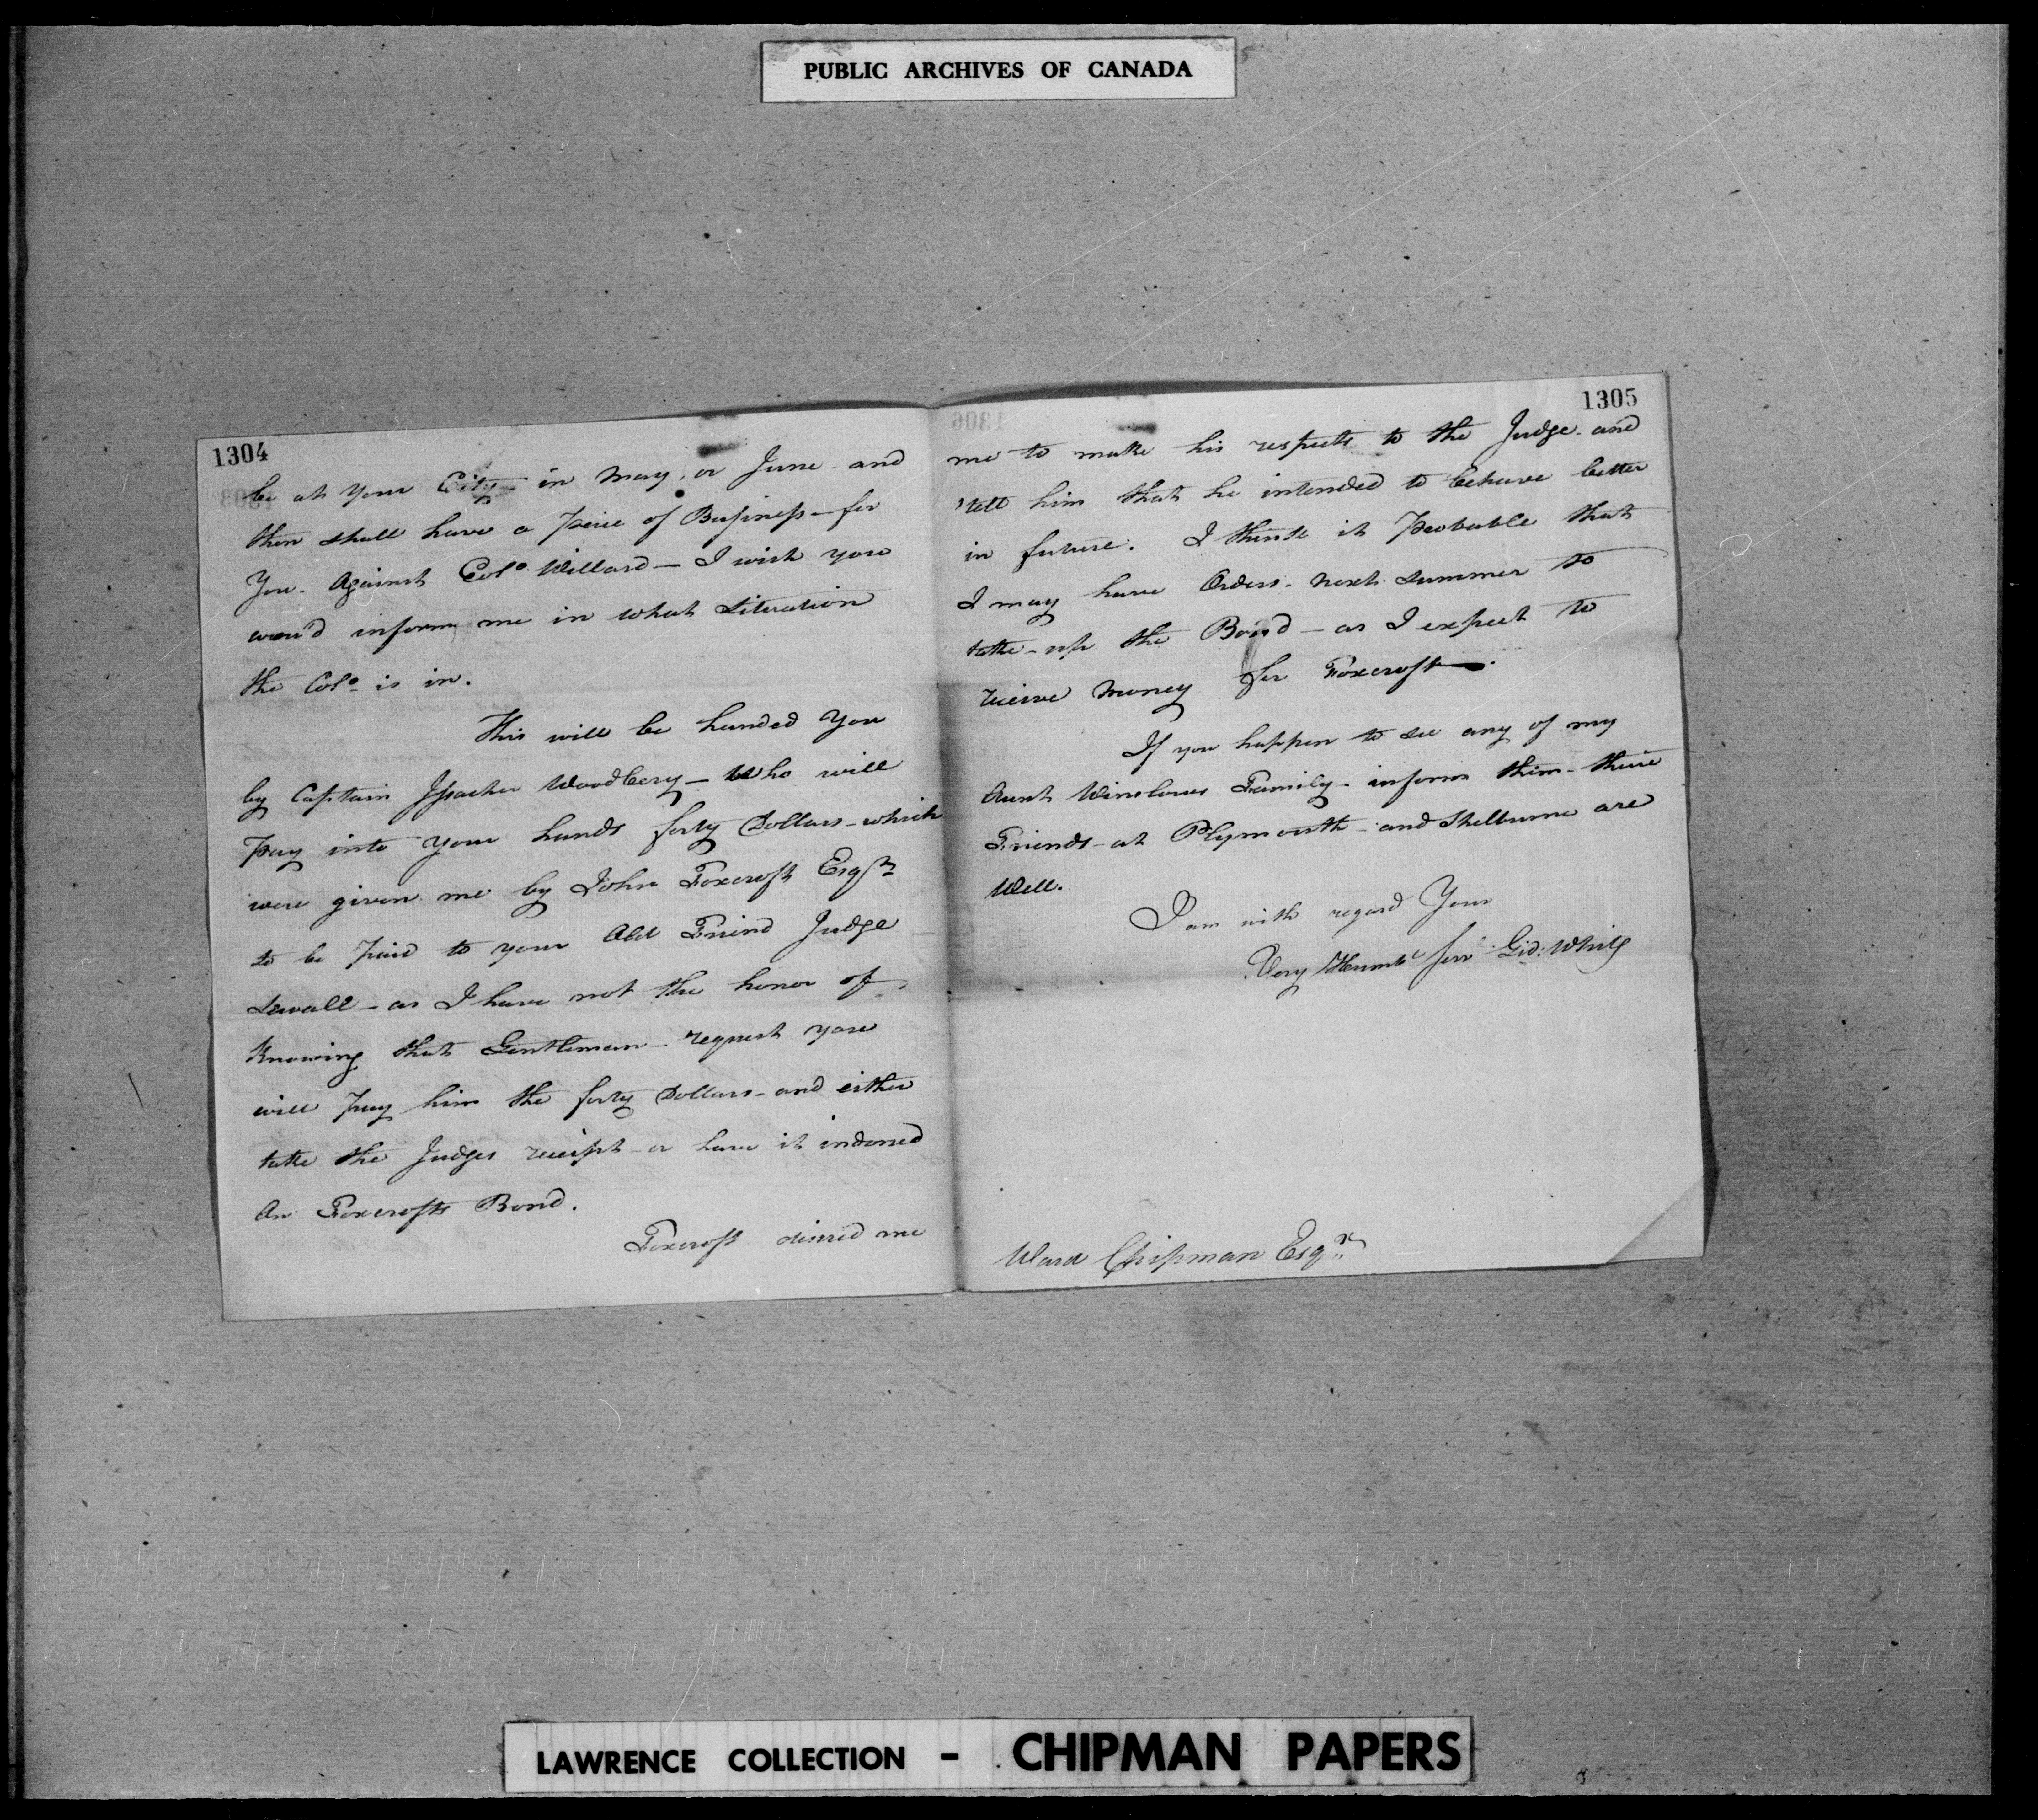 PUBLIC ARCHIVES OF CANADA
1304
be at your City in May, or June and
then shall have a Peice of Business - for
You - Against Colo. Willard - I wish you
wou'd inform me in what Situation
the Colo. is in.
This will be handed You
by Captain Woodbery - Who will
Pay into your hands forty Dollars - which
were given me by John Foxcroft Esqr.
to be Paid to your Old Friend Judge
Sewall - as I have not the honor of
Knowing that Gentleman - request you
will Pay him the forty Dollars - and either
take the Judges receipt - or have it indorsed
On Foxcrofts Bond.
Foxcroft desired me
1305
me to make his respects to the Judge - and
tell him that he intended to behave better
in future. I think it Probable that
I may have Orders - next Summer to
take - up the Bond - as I expect to
receive Money for Foxcroft.
If you happen to see any of my
Aunt Winslows Family - inform them - their
Friends - at Plymouth - and Shelburne are
Well.
I am with regard Your
Very Humbl Serv Gid: White
Ward Chipman Esqr.
LAWRENCE COLLECTION - CHIPMAN PAPERS